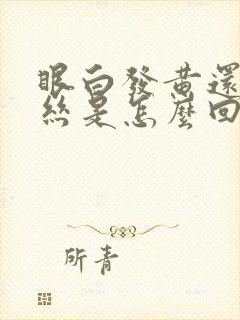 眼白發黃還
絲是怎麼回
所青